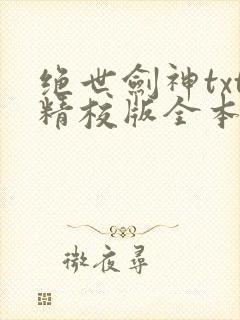 绝世劍神txt
精校版全本
微夜尋